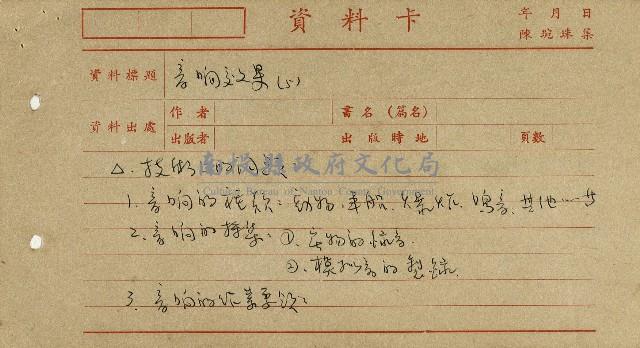 資料卡
年 月 日
陳琬珠集
資料標題 音响效果(5)
資料出處 作者 書名(篇名)
出版者 出版時地 頁數
南投縣政府文化局
Cultural Bureau of Nantou County Government
△. 技術
1. 音响的種類: 動物、車船、爆炸、鳴音、其他……等
2. 音响的採集: ①. 实物的
②. 模拟音的製錄.
3. 音响的作業要領: